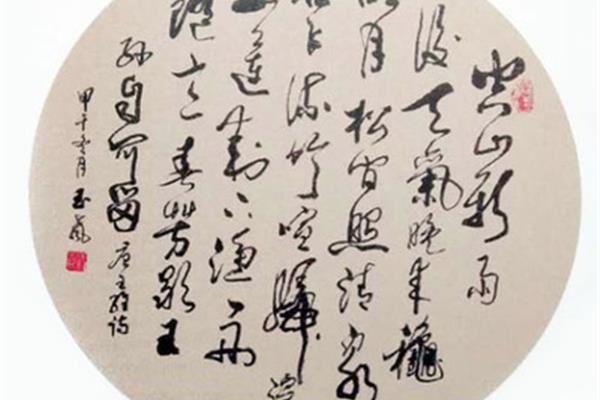 空山新雨
後天氣晚来穐
明月松间照清泉
石上流竹喧歸浣
女蓮動下漁舟
隨意春芳歇王
孫自可留 唐王維诗
甲午冬月